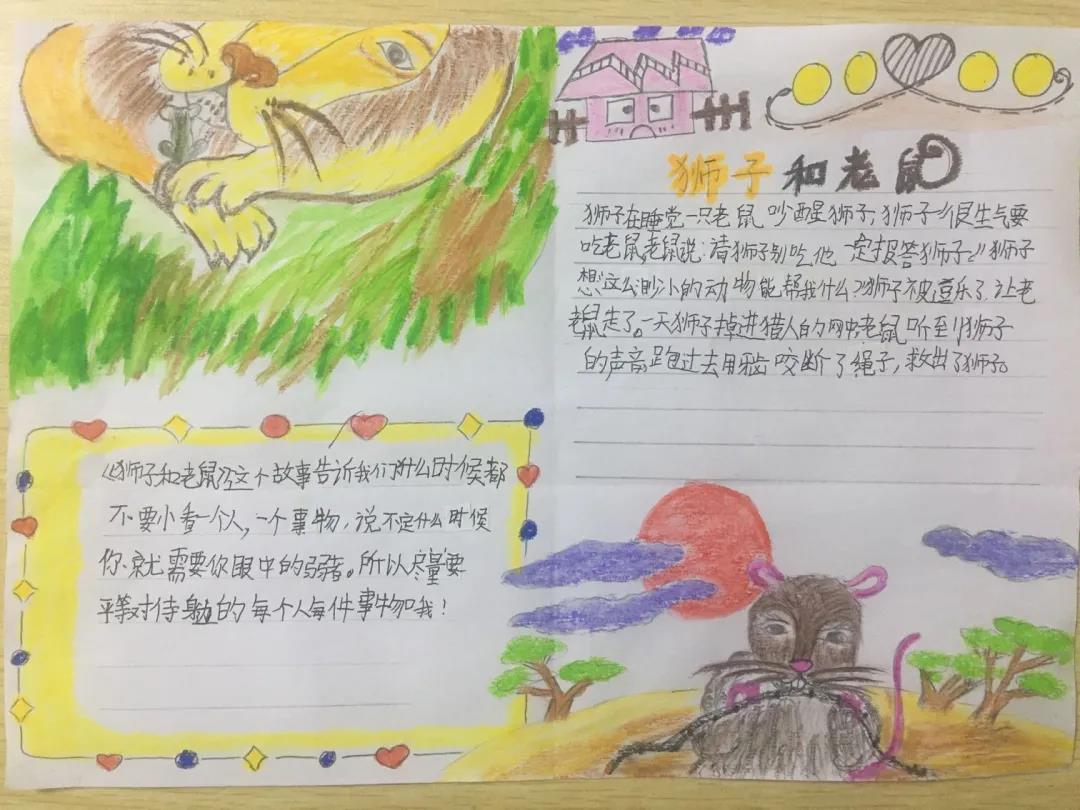 狮子和老鼠
狮子在睡觉一只老鼠吵醒狮子,狮子很生气要
吃老鼠老鼠说:请狮子别吃他一定报答狮子》狮子
想这么渺小的动物能帮我什么》狮子被逗乐了让老
老鼠走了。一天狮子掉进猎人的网中老鼠听到狮子
的声音跑过去用牙齿咬断了绳子,救出了狮子。
《狮子和老鼠》这个故事告诉我们什么时候都
不要小看一个人,一个事物,说不定什么时候
你就需要你眼中的弱者。所以尽量要
平等对待身边的每个人每件事物